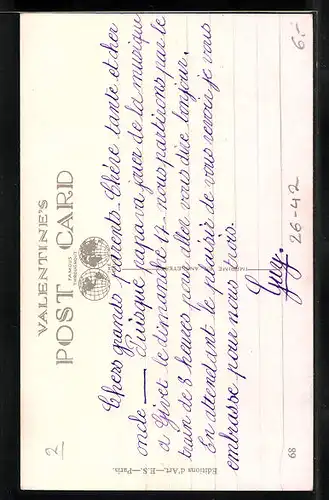 VALENTINE'S
POST CARD
FAMOUS THROUGHOUT THE WORLD
Chers grands parents. Chère tante et cher
oncle — Puisque papa va jouer de la musique
a Givet le dimanche 17. nous partirons par le
train de 8 heures pour aller vous dire bonjour.
En attendant le plaisir de vous revoir je vous
embrasse pour nous trois.
Guy.
IMPRIMÉ EN ANGLETERRE
Editions d'Art.—E.S.—Paris.
68
26-42
6.-
2